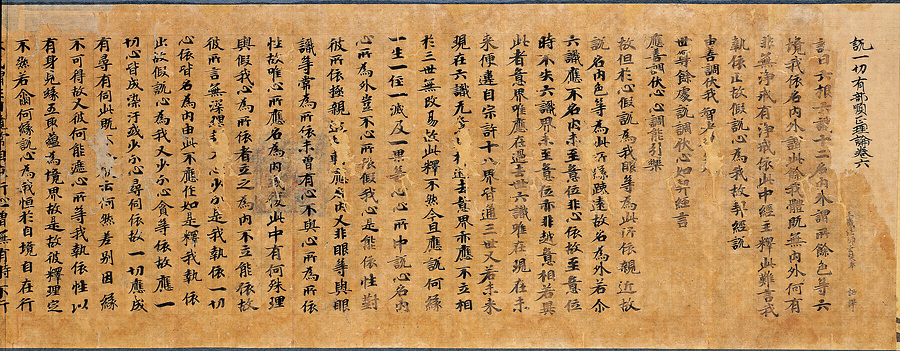 說一切有部順正理論卷六
論曰六根六識十二名內外謂所餘色等六
境我依名內外謂此餘我體既無內外何有
非無淨我有淨我依此中經主釋此難言我
執依止故假說心為我故契經說
由善調伏我 智
世尊餘處說調伏心如契經言
應善調伏心 心調能引樂
故但於心假說為我眼等為此所依親近故
說名內色等為此所緣疎遠故名為外若尒
六識應不名內未至意位非心依故至意位
時不失六識界未至意位亦非越意相若異
此者意界唯應在過去世六識唯在現在未
來便違自宗許十八界皆通三世又若未來
現在六識无意界相過去意界亦應不立相
於三世無改易故此釋不然今且應說何緣
一生一住一滅及一果等心心所中說心名內
心所為外豈不心所依假我心是能依性對
彼所依極親近應名內又非眼等與眼
識等常為所依未曾有心不與心所為所依
性故唯心所應名為內或復此中有何殊理
與假我心為所依者立之為內不立能依故
彼所言無深理心少分是我執依一切
心依皆名為內由此不應作如是釋我執依
止故假說心為我又少分心貪等依故應一
切心皆成染汙或少心尋伺依故一切應成
有尋有伺此既不云何然差別因緣
不可得故又彼何能遮心所等我執依性以
有身見緣五取蘊為境界故是故彼釋理定
不然若爾何緣說心為我恒於自境自在行